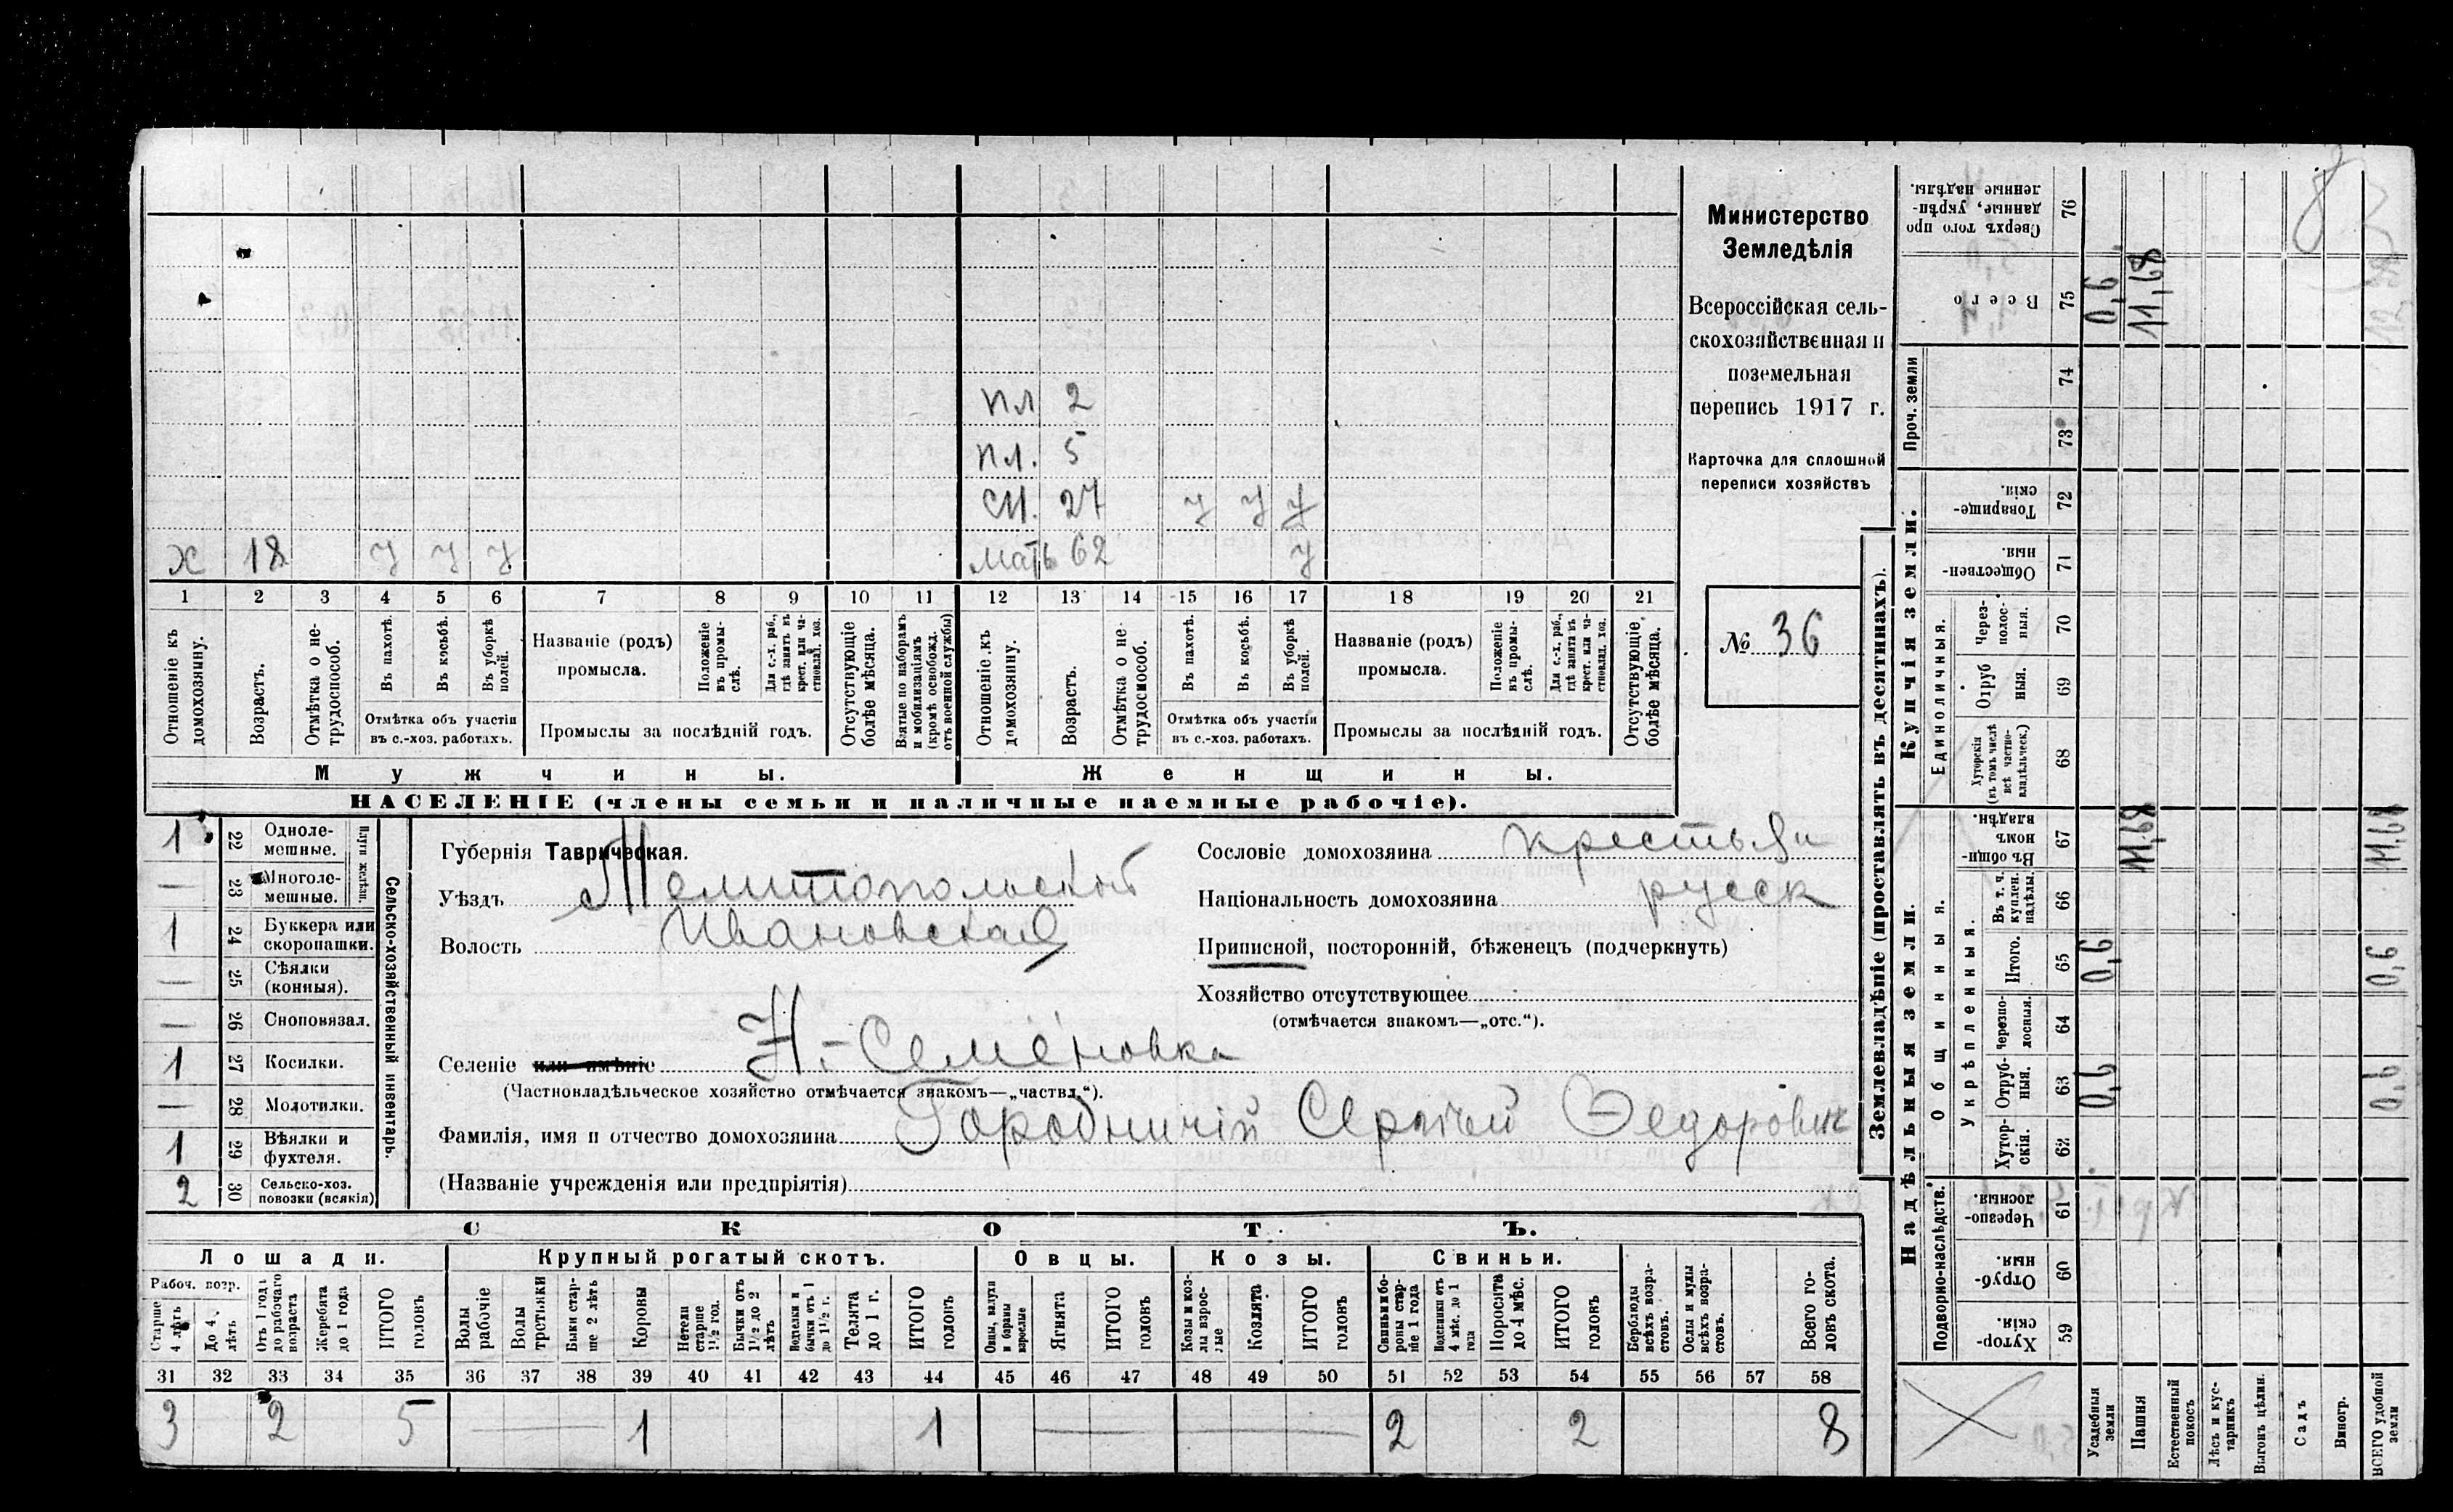 пл 2
пл. 5
сн. 27 у у у
х 18 у у у мать 62 у
1 2 3 4 5 6 7 8 9 10 11 12 13 14 15 16 17 18 19 20 21
Отношеніе къ домохозяину.
Возрастъ.
Отмѣтка о не-трудоспособ.
Въ пахотѣ.
Въ косьбѣ.
Въ уборкѣ полей.
Отмѣтка объ участіи
въ с.-хоз. работахъ.
Названіе (родъ)
промысла.
Положеніе въ промы-слѣ.
Для с.-х. раб., гдѣ занятъ въ крест. или ча-стновлад. хоз.
Промыслы за послѣдній годъ.
Отсутствующіе болѣе мѣсяца.
Взятые по наборамъ и мобилизаціямъ (кромѣ освобожд. отъ военной службы)
Отношеніе къ домохозяину.
Возрастъ.
Отмѣтка о не-трудоспособ.
Въ пахотѣ.
Въ косьбѣ.
Въ уборкѣ полей.
Отмѣтка объ участіи
въ с.-хоз. работахъ.
Названіе (родъ)
промысла.
Положеніе въ промы-слѣ.
Для с.-х. раб., гдѣ занятъ въ крест. или ча-стновлад. хоз.
Промыслы за послѣдній годъ.
Отсутствующіе болѣе мѣсяца.
Мужчины.
Женщины.
НАСЕЛЕНІЕ (члены семьи и наличные наемные рабочіе).
Министерство
Земледѣлія
Всероссійская сель-
скохозяйственная и
поземельная
перепись 1917 г.
Карточка для сплошной
переписи хозяйствъ
№ 36
Сельско-хозяйственный инвентарь.
Плуги желѣзн.
1 22 Одноле-мешные.
— 23 Многоле-мешные.
1 24 Буккера или скоропашки.
— 25 Сѣялки (конныя).
— 26 Сноповязал.
1 27 Косилки.
— 28 Молотилки.
1 29 Вѣялки и фухтеля.
2 30 Сельско-хоз. повозки (всякія)
Губернія Таврическая.
Уѣздъ Мелитопольскій
Волость Ивановская
Селеніе или имѣніе Н.-Семеновка
(Частновладѣльческое хозяйство отмѣчается знакомъ—„частвл.“).
Фамилія, имя и отчество домохозяина Городничій Сергѣй Федорович
(Названіе учрежденія или предпріятія)
Сословіе домохозяина крестьян
Національность домохозяина русск
Приписной, посторонній, бѣженецъ (подчеркнуть)
Хозяйство отсутствующее
(отмѣчается знакомъ—„отс.“).
СКОТЪ.
Лошади.
Крупный рогатый скотъ.
Овцы.
Козы.
Свиньи.
Рабоч. возр.
Старше 4 лѣтъ
До 4 лѣтъ
Отъ 1 года до рабочаго возраста
Жеребята до 1 года
ИТОГО головъ
Волы рабочіе
Волы третьяки
Быки стар-ше 2 лѣтъ
Коровы
Нетели старше 1½ год.
Бычки отъ 1½ до 2 лѣтъ
бычки отъ 1 до 1½ г.
Телята до 1 г.
ИТОГО головъ
Овцы, валухи и бараны взрослые
Ягнята
ИТОГО головъ
Козы и коз-лы взрос-лые
Козлята
ИТОГО головъ
Свиньи и бо-ровы стар-ше 1 года
Подсвинки отъ 4 мѣс. до 1 года
Поросята до 4 мѣс.
ИТОГО головъ
Верблюды всѣхъ возра-стовъ.
Ослы и мулы всѣхъ возра-стовъ.
Всего го-ловъ скота.
31 32 33 34 35 36 37 38 39 40 41 42 43 44 45 46 47 48 49 50 51 52 53 54 55 56 57 58
3 2 5 — 1 1 — — 2 2 8
Землевладѣніе (проставлять въ десятинахъ).
Надѣльныя земли.
Купчія земли.
Проч. земли
Подворно-наслѣдств.
Общинныя.
Укрѣпленныя.
Единоличныя.
Хутор-скія. 59
Отруб-ныя. 60
Черезпо-лосныя. 61
Хутор-скія. 62
Отруб-ныя. 63 0,6 0,6
Черезпо-лосныя. 64
Итого. 65 0,6 0,6
Въ т. ч. куплен. надѣлы. 66
Въ общин-номъ владѣн. 67 11,68 11,68
Хуторскія (въ томъ числѣ всѣ частно-владѣльческ.) 68
Отруб ныя. 69
Через-полос-ныя. 70
Обществен-ныя. 71
Товарище-скія. 72
73
74
Всего 75 0,6 11,68
Сверхъ того про данные, укрѣп-ленные надѣлы. 76
Усадебныя земли
Пашня
Естественный покосъ
Лѣсъ и кус-тарникъ
Выгонъ цѣлин.
Садъ
Виногр.
ВСЕГО удобной земли